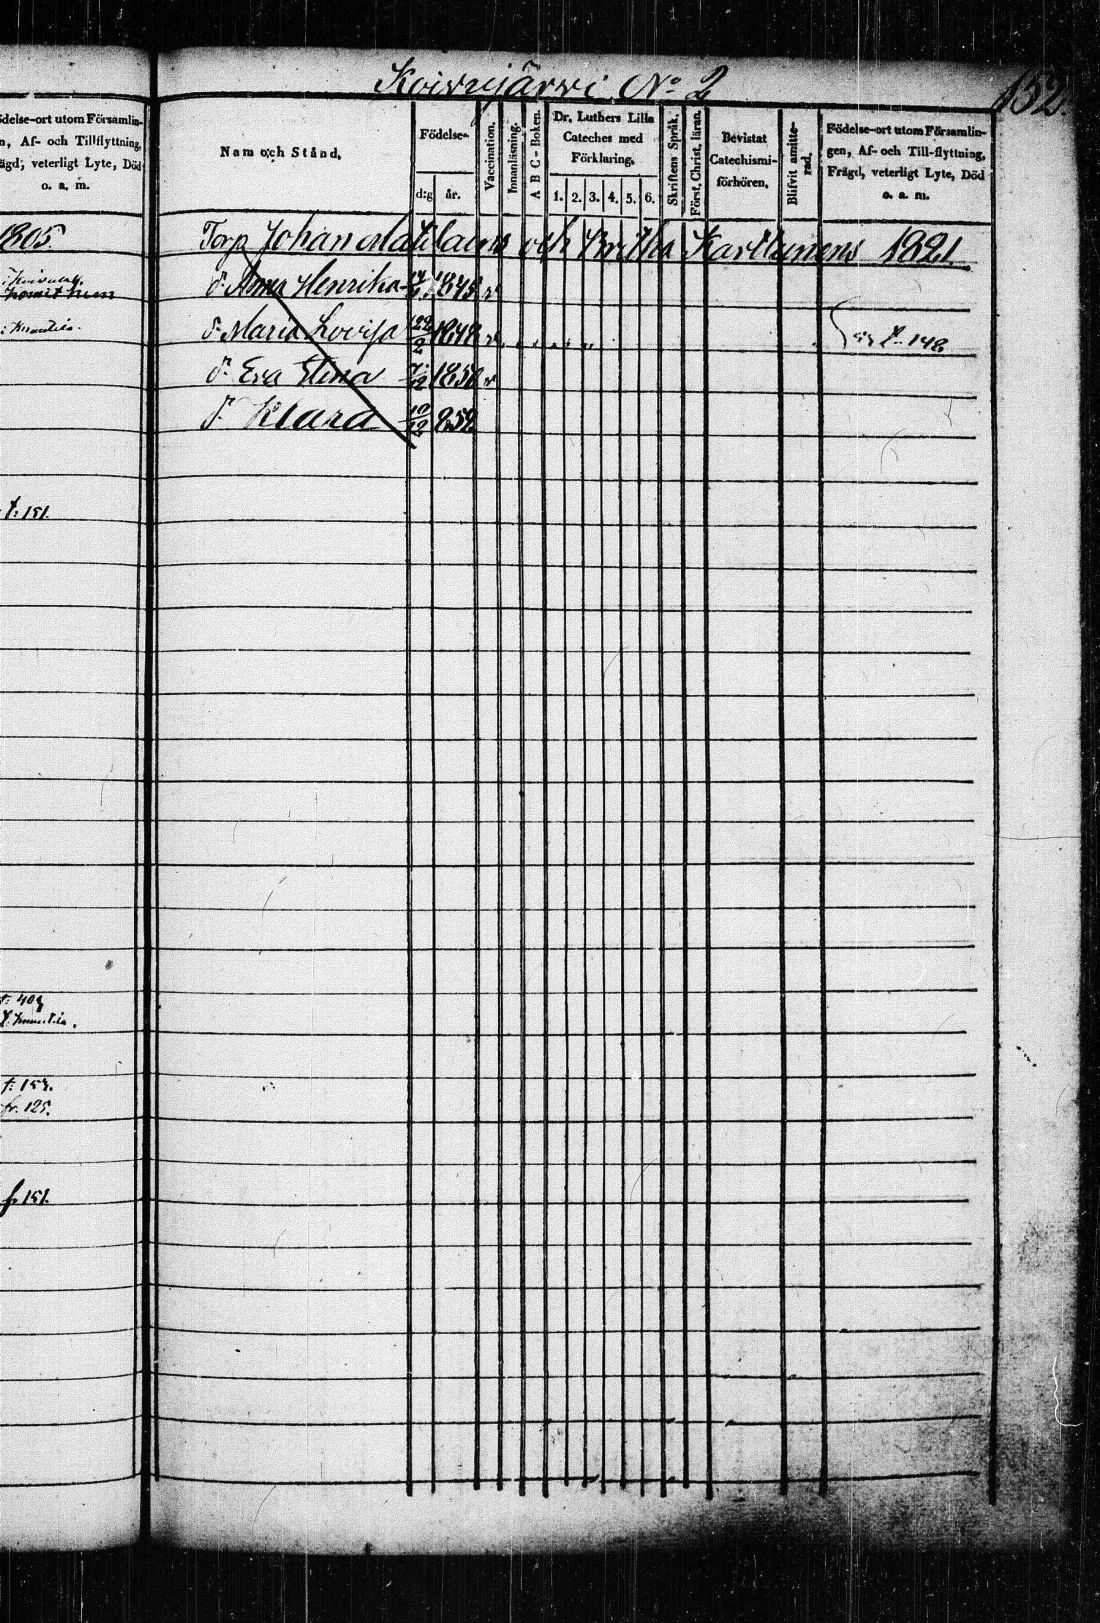 Koivujärvi No 2
152.
ödelse-ort utom Församlin-
n, Af- och Tillflyttning,
rägd, veterligt Lyte, Död
o. a. m.
1805.
t: 151.
t: 409
t: 153.
fr. 125.
fr 151.
Namn och Stånd.
Födelse-
d:g år.
Vaccination.
Innanläsning.
A B C - Boken.
Dr. Luthers Lilla
Cateches med
Förklaring.
1. 2. 3. 4. 5. 6.
Skriftens Språk.
Först. Christ. läran.
Bevistat
Catechismi-
förhören.
Blifvit amitte-
rad.
Födelse-ort utom Församlin-
gen, Af- och Till-flyttning,
Frägd, veterligt Lyte, Död
o. a. m.
Torp Johan och Britha Karttunens 1821.
d. Anna Henrika 1845 v
d. Maria Lovisa 22/2 1848 v t 148
d. Eva Stina 1850 v
d. Klara 10/12 852